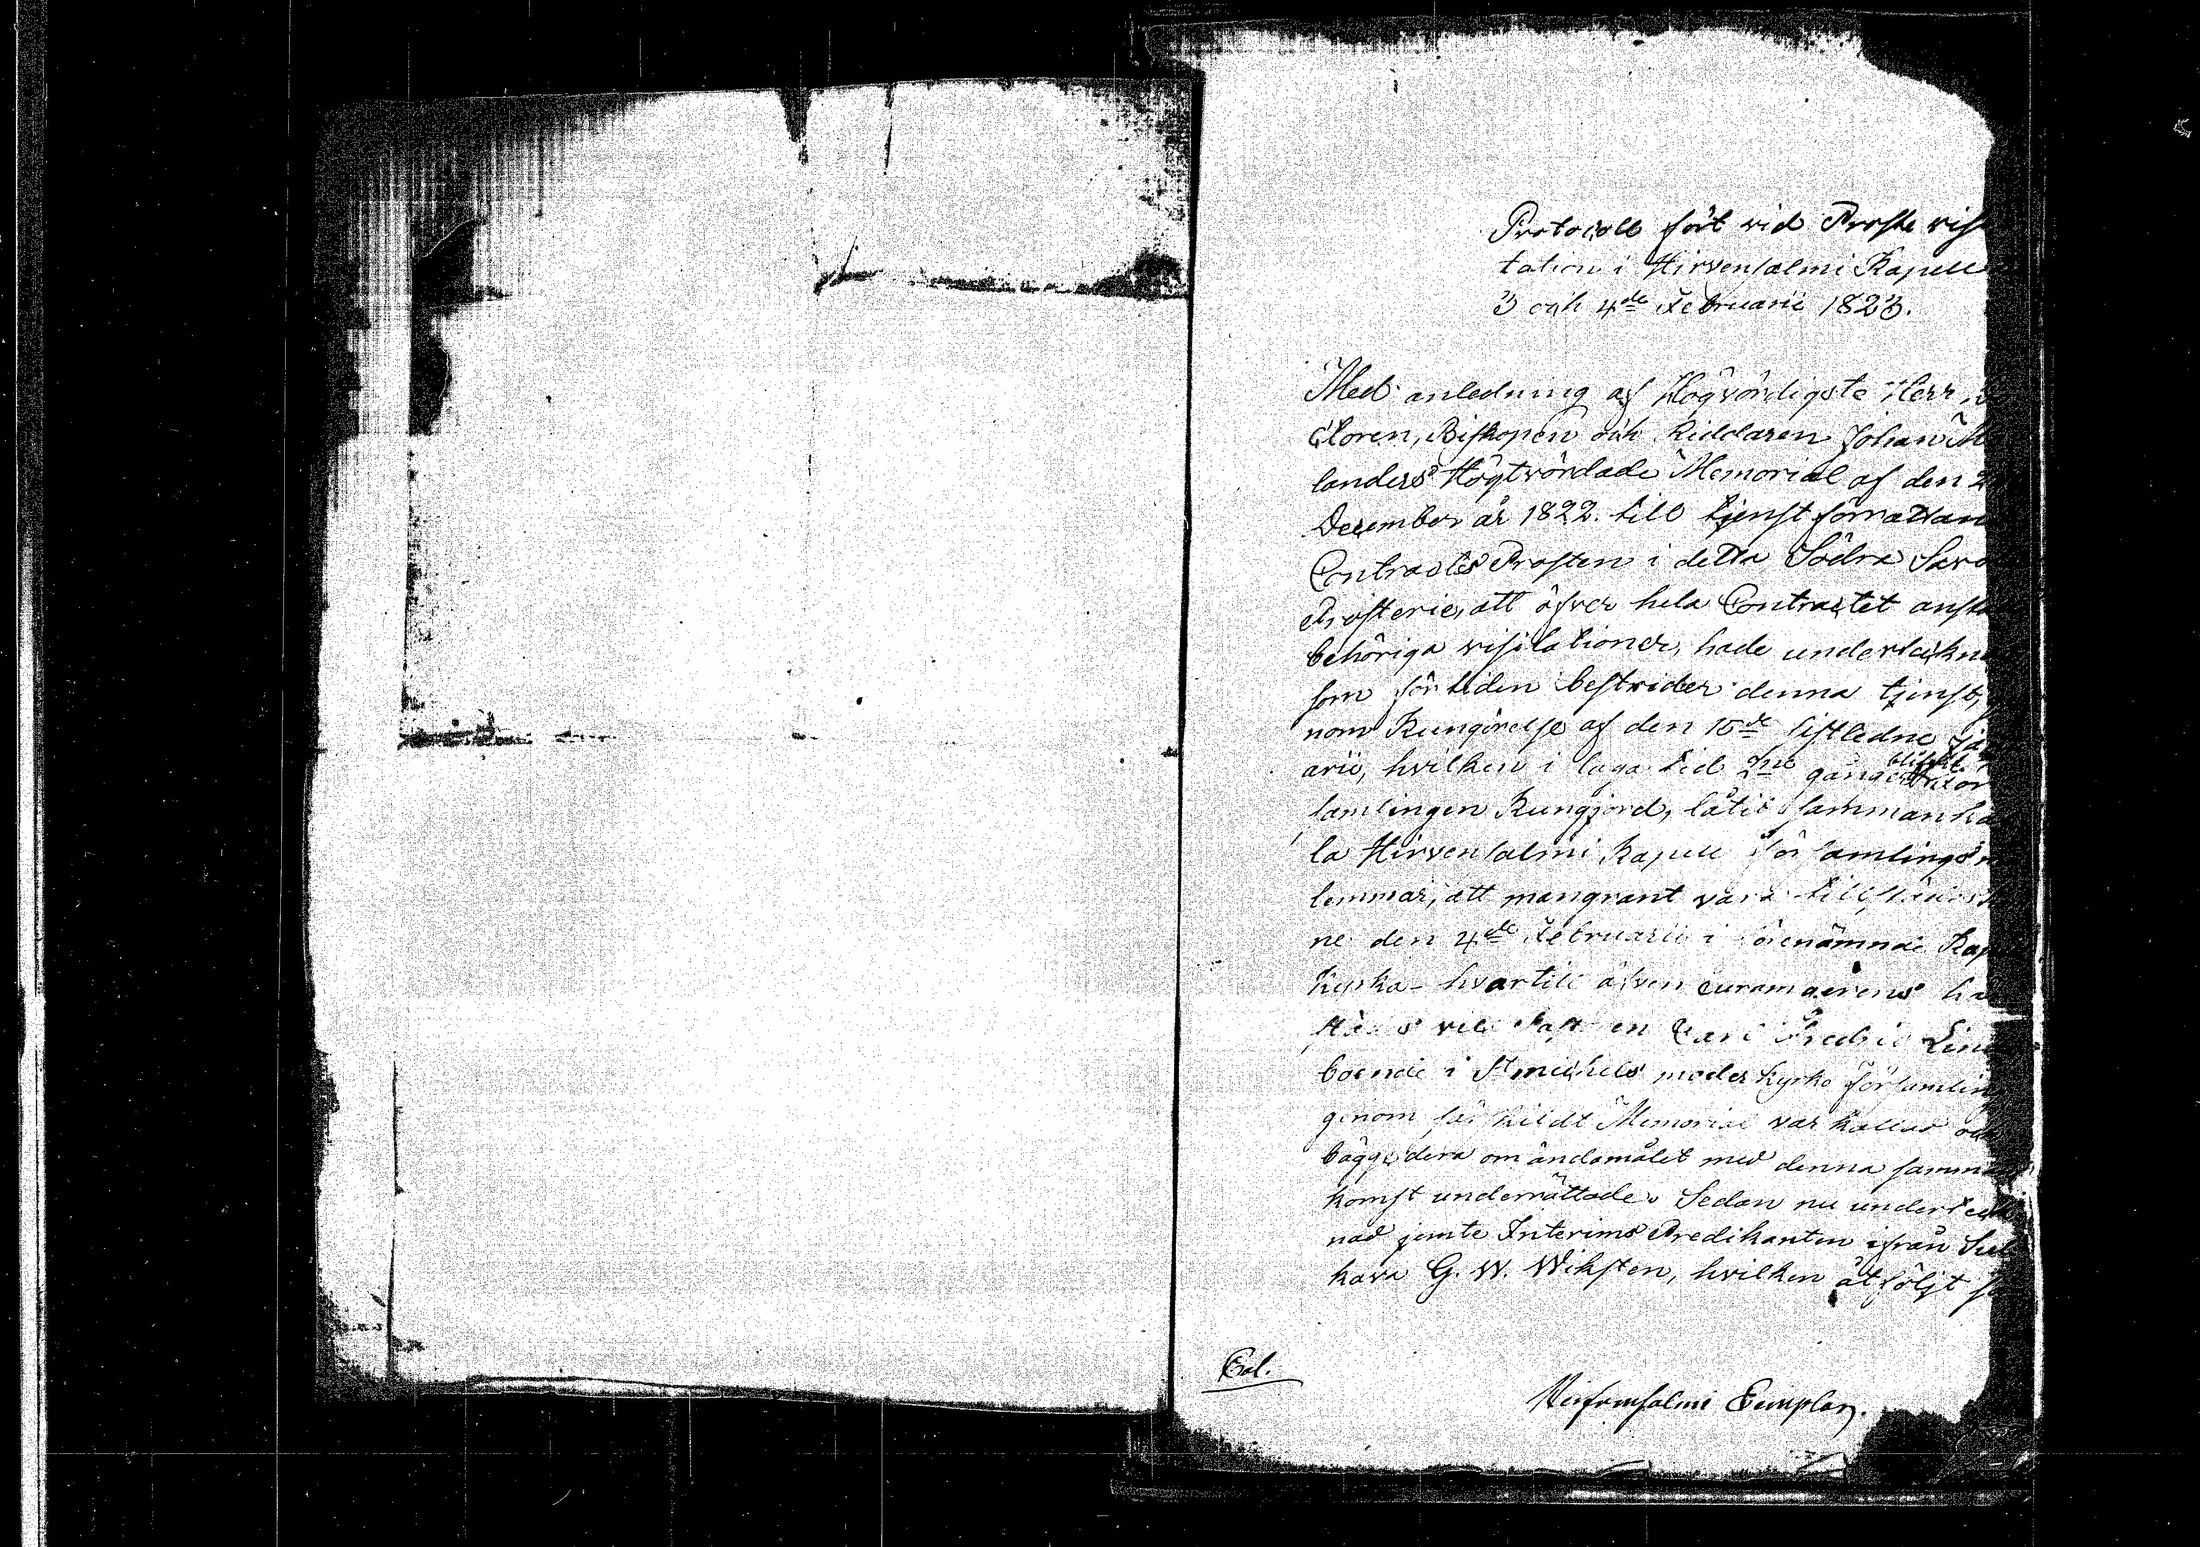 Protocoll fört vid Proste visi
tation i Hirvensalmi Kapell
3 och 4de Februarii 1823.
Med anledning af Högvördigste Herr
ctoren, Biskopen och Riddaren Johan M
landers Högtvördade Memorial af den 2
December år 1822. till tjenstförrättan
Contracts Prosten i detta Södra Savo
Prosterie, att öfver hela Contractet anstä
behöriga visitationer, hade underteckne
som för tiden bestrider denna tjenst,
nom Kungörelse af den 15de sistledne Ja
arii, hvilken i laga tid 2ne gånger blifvit
samlingen Kungjord, låtit sammankal
la Hirvensalmi Kapell församlings
lemmar, att mangrant vara tillstädes
ne den 4de Februarii i förenämnde Kap
kyrka hvartill äfven
Carl Fredric Lind
boende i St michels moderkyrko församlin
genom Memorial var kallad och
bägge dera om ändamålet med denna samman
komst underrättade. Sedan nu underteck
nad jemte Interims Predikanten ifrån Sul
kava G. W. Wiksten, hvilken åtföljt
Col.
Hirfvensalmi Exemplar.